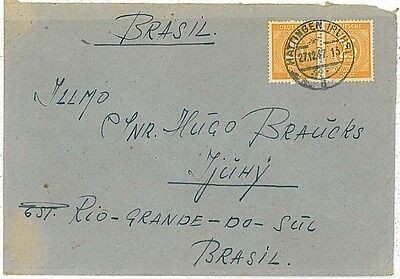 BRASIL.
HATTINGEN (RUHR)
27.12.47.15
d
ILLMO
SNR. HUGO BRAUCKS
IJUHÝ
EST. RIO-GRANDE-DO-SUL
BRASIL.